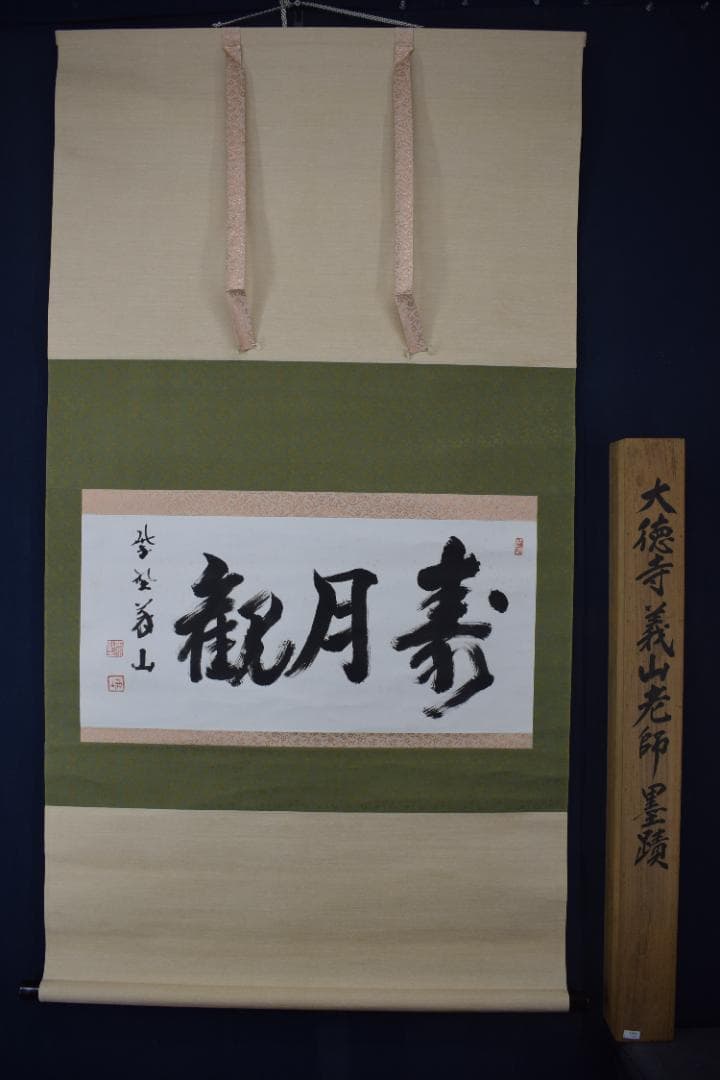 寿月観
紫野義山
大徳寺義山老師墨蹟